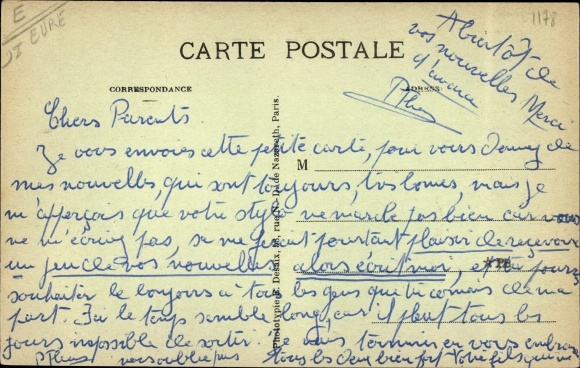 E
EURE
1178
CARTE POSTALE
CORRESPONDANCE
ADRESSE
M
Phototypie E. Desaix, rue N.-D. de Nazareth, Paris.
A bientôt de
vos nouvelles Merci
d'avance
Chers Parents.
Je vous envoies cette petite carte, pour vous donner de
mes nouvelles, qui sont toujours, très bonnes mais je
m'aperçois que votre stylo ne marche pas bien car vous
ne m'écrivez pas, sa me ferait pourtant plaisir de recevoir
un peu de vos nouvelles alors écrit moi, et tu
souhaiter le bonjours à tous les gens que tu connais de ma
part. Ici le temps semble long, car il pleut tous les
jours impossible de sortir. Je vais terminer en vous embrassant
tous les deux bien fort Votre fils qui ne
vous oublie pas